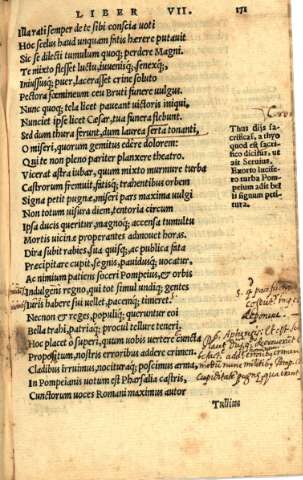 LIBER VII. 171
Illa rati semper de te sibi conscia uoti
Hoc scelus haud unquam fatis hærere putauit
Sic se dilecti tumulum quoque perdere Magni.
Te mixto flesset luctu, iuuenisque, senexque,
Iniussusque puer, lacerasset crine soluto
Pectora fœmineum ceu Bruti funere uulgus.
Nunc quoque tela licet paueant uictoris iniqui,
Nunciet ipse licet Cæsar, tua funera flebunt.
Sed dum thura ferunt, dum laurea serta tonanti,
O miseri, quorum gemitus edere dolorem:
Qui te non pleno pariter planxere theatro.
Vicerat astra iubar, quum mixto murmure turba
Castrorum fremuit, fatisque trahentibus orbem
Signa petit pugnæ, miseri pars maxima uulgi
Non totum uisura diem, tentoria circum
Ipsa ducis queritur, magnoque accensa tumultu
Mortis uicinæ properantes admouet horas.
Dira subit rabies, sua quisque, ac publica fata
Præcipitare cupit, segnis, pauidusque uocatur,
Ac nimium patiens soceri Pompeius, & orbis
Indulgens regno, qui tot simul undique gentes
Iuris habere sui uellet, pacemque timeret.
Necnon & reges, populique queruntur eoi
Bella trahi, patriaque procul tellure teneri.
Hoc placet ô superi, quum uobis uertere cuncta
Propositum, nostris erroribus addere crimen.
Cladibus irruimus, nocituraque poscimus arma,
In Pompeianis uotum est Pharsalia castris,
Cunctorum uoces Romani maximus autor
Tullius
Thus dijs sa-
crificari, a thyo
quod est sacri-
dicitur, ut
ait Seruius.
Exorto lucife-
ro turba Pom-
peium adit bel
li signum pe-
titura.